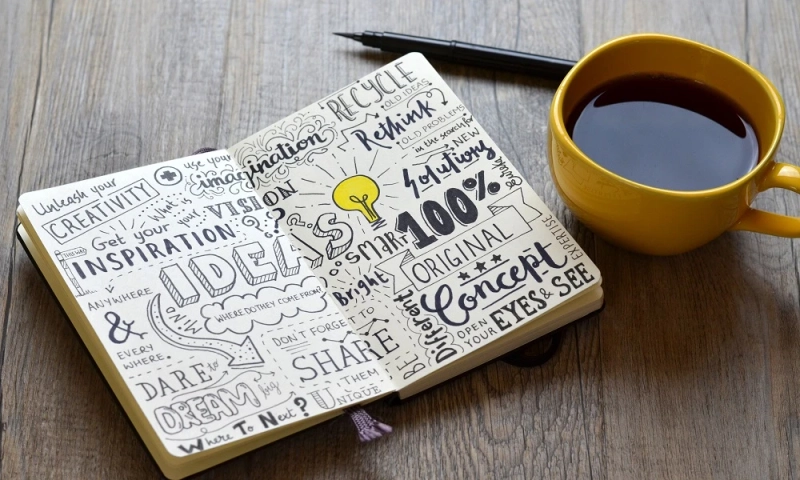 Unleash your
CREATIVITY
use your
imagination
What is
your
VISION
?
Get your
INSPIRATION
ANYWHERE
& EVERY
WHERE.
IDEAS
MIND
WHERE DO THEY COME FROM?
DON'T FORGET TO
SHARE
THEM
DARE to
DREAM big
Where To Next?
RECYCLE
OLD IDEAS
Rethink
OLD PROBLEMS
in the search for
NEW
Solutions
SMART
Bright
100%
ORIGINAL
Concept
EXPERTISE
BE
Different
UNIQUE
OPEN
YOUR
EYES & SEE